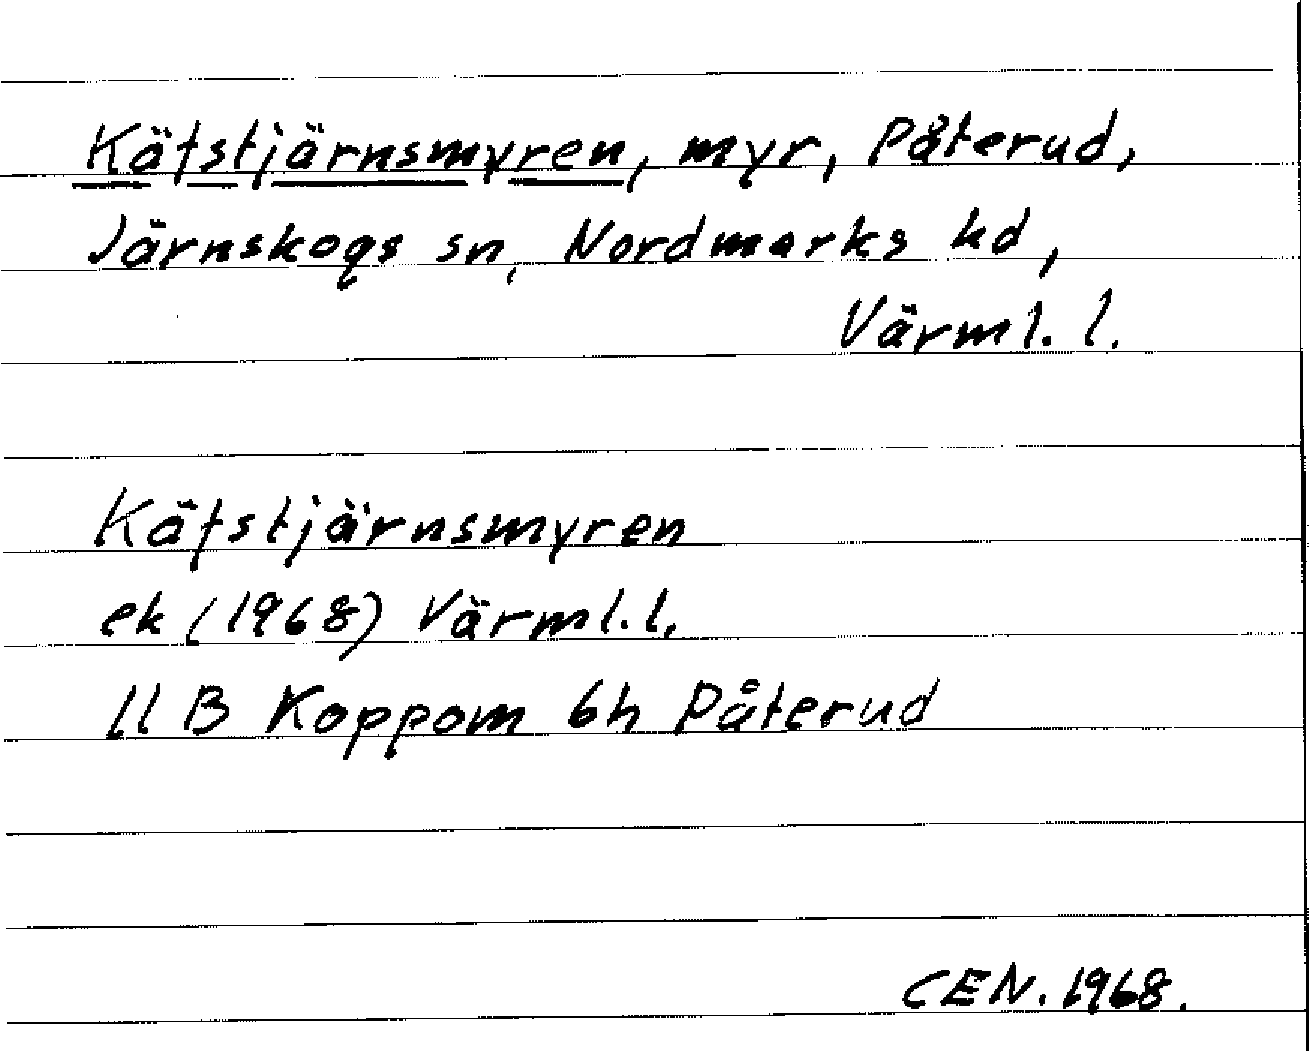 Käfstjärnsmyren, myr, Påterud,
Järnskogs sn, Nordmarks hd,
Värml. l.
Käfstjärnsmyren
ek (1968) Värml. l.
11 B Koppom 6h Påterud
CEN. 1968.